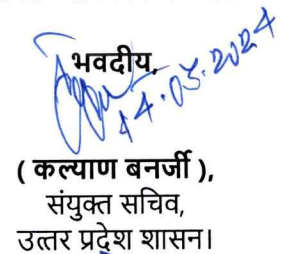 भवदीय,
14.03.2024
( कल्याण बनर्जी ),
संयुक्त सचिव,
उत्तर प्रदेश शासन।